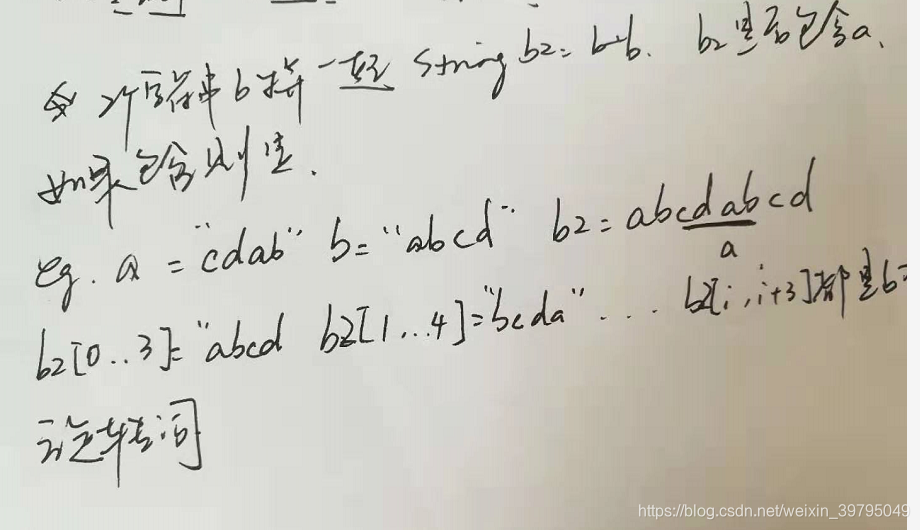 2个字符串b拼一起 String b2=b+b. b2是否包含a.
如果包含则是.
eg. a = "cdab" b = "abcd" b2 = abcdabcd
a
b2[0..3]="abcd b2[1...4]="bcda"... b2[i,i+3]都是b
旋转词
https://blog.csdn.net/weixin_39795049